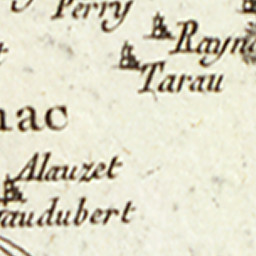 Perry
Rayna
Tarau
nac
Alauzet
audubert